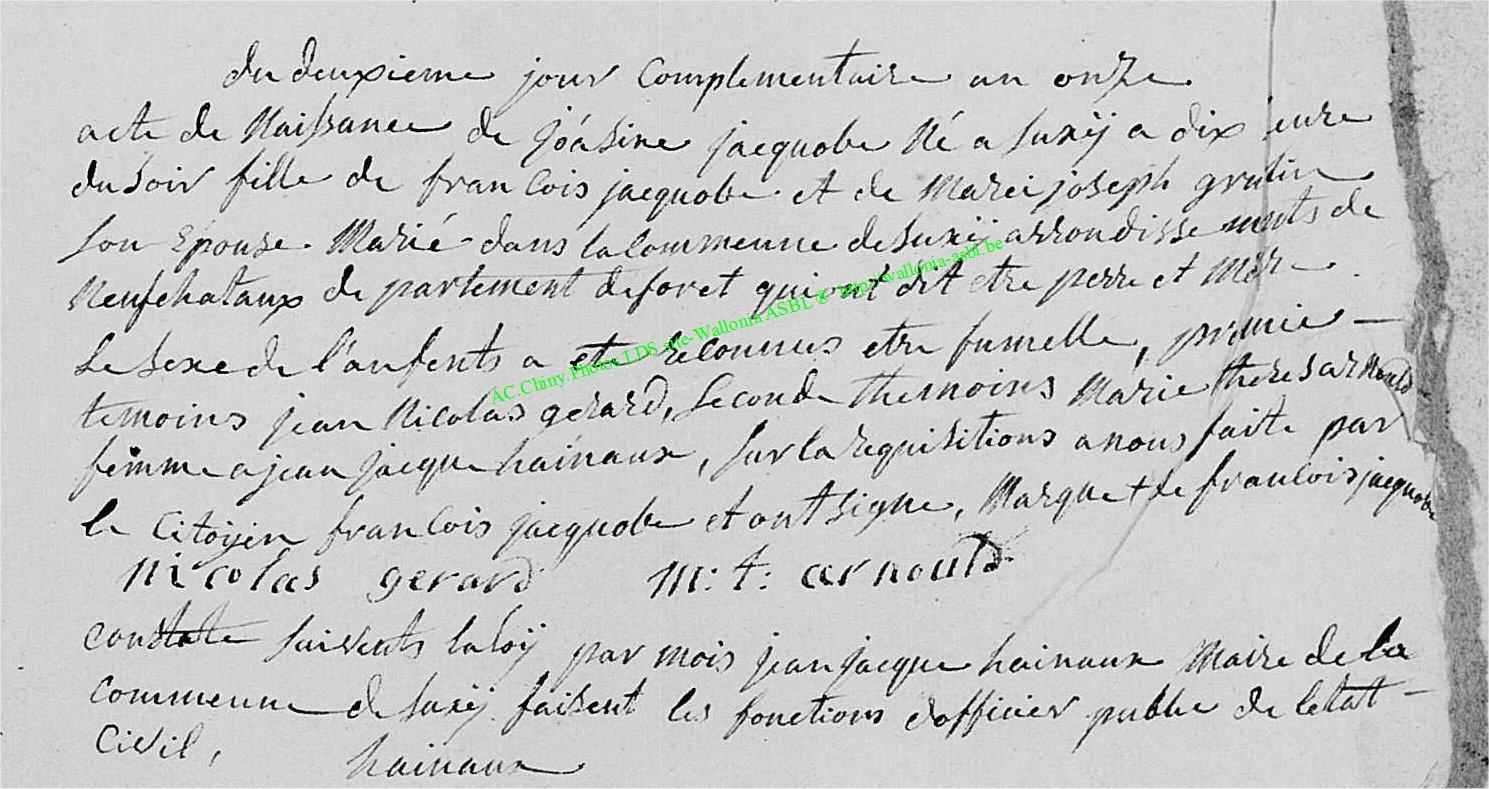 du deuxieme jour Complementaire an onze
acte de Naissance de joásine jacquobe Né a suxÿ a dix eure
du soir fille de francois jacquobe et de Marei joseph grutin
son Epouse Marié dans la Commeune de suxÿ arrondisse ments de
Neufchataux de partement de foret qui ont dit etre perre et Mere
le sexe de l'anfents a ete Reconnus etre fumelle, premie
temoins jean Nicolas gerard, seconde themoins Marie theres arnould
femme a jean jacque hainaux, sur la requisitions a nous faite par
le Citoÿen francois jacquobe et ont signe, Marque + de francois jacquobe
nicolas gerard m: t: arnould
constate suivents la loÿ par mois jean jacque hainaux Maire de la
Commeune de suxÿ faisent les fonctions dofficier publie de letat
Civil, hainaux
AC.Chiny.Photos LDS site-Wallonia ASBL @ http://wallonia-asbl.be